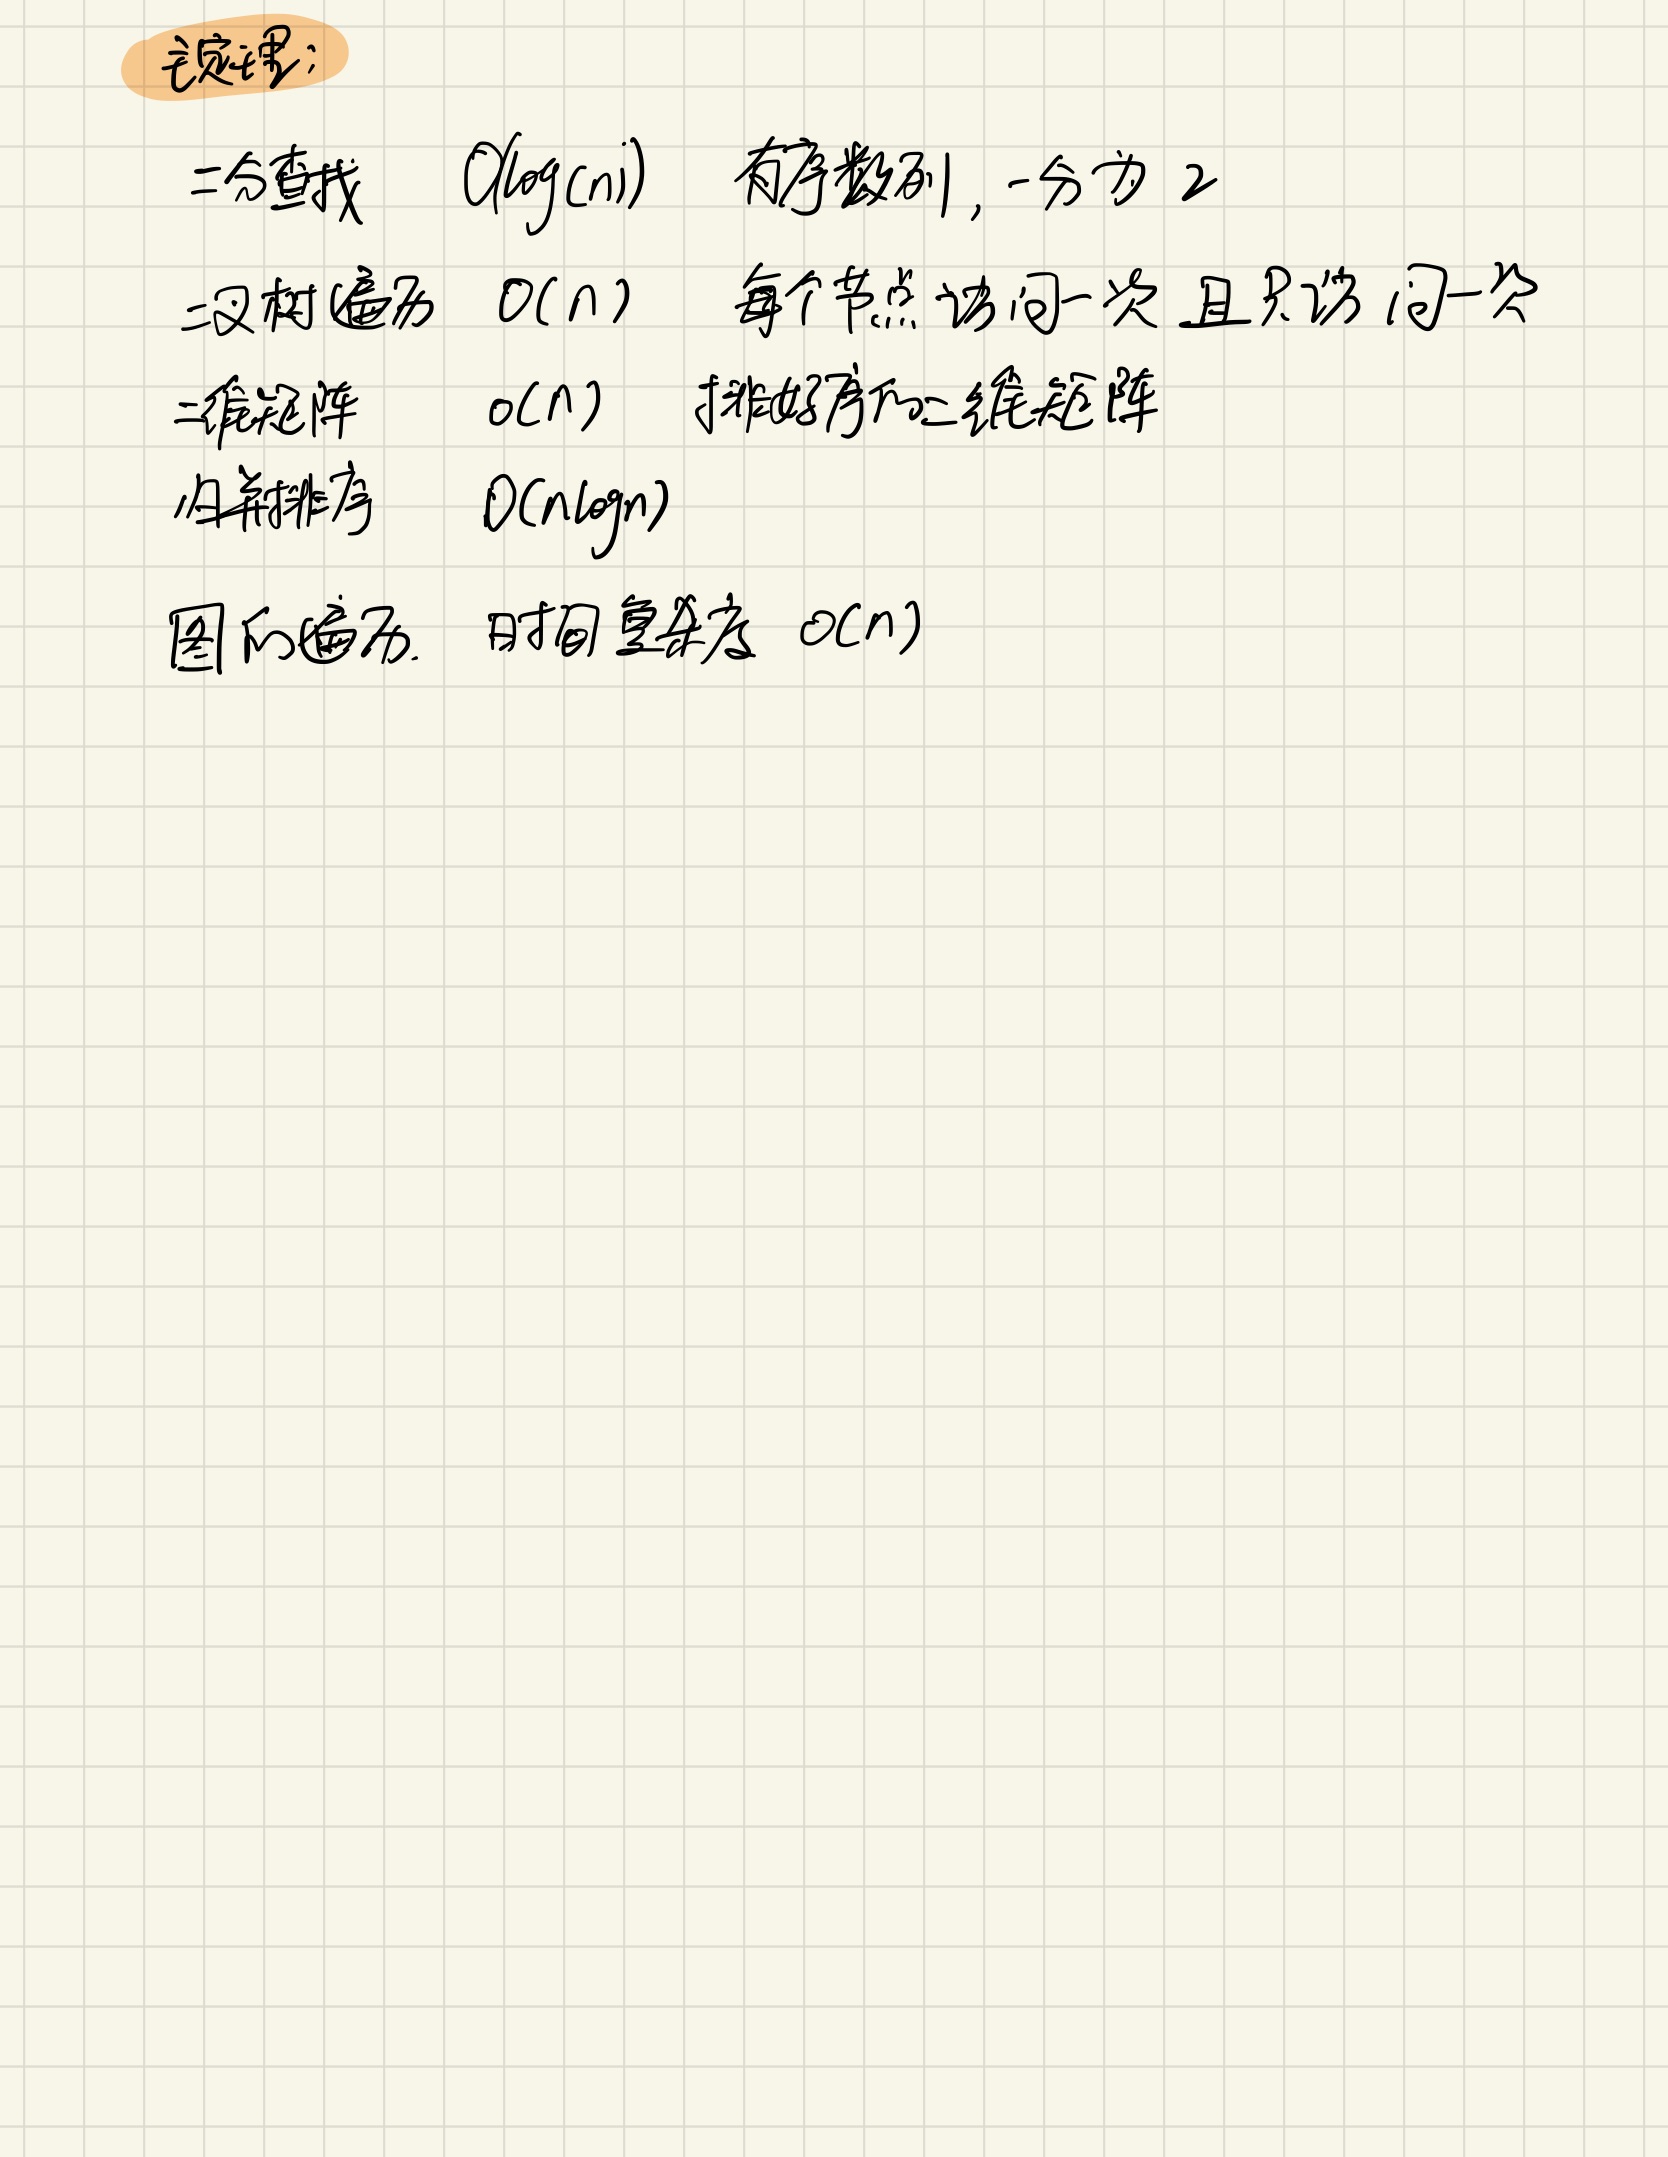 主定理:
二分查找 O(log(n)) 有序数列,一分为2
二叉树遍历 O(n) 每个节点访问一次且只访问一次
二维矩阵 O(n) 排好序的二维矩阵
归并排序 O(nlogn)
图的遍历. 时间复杂度 O(n)